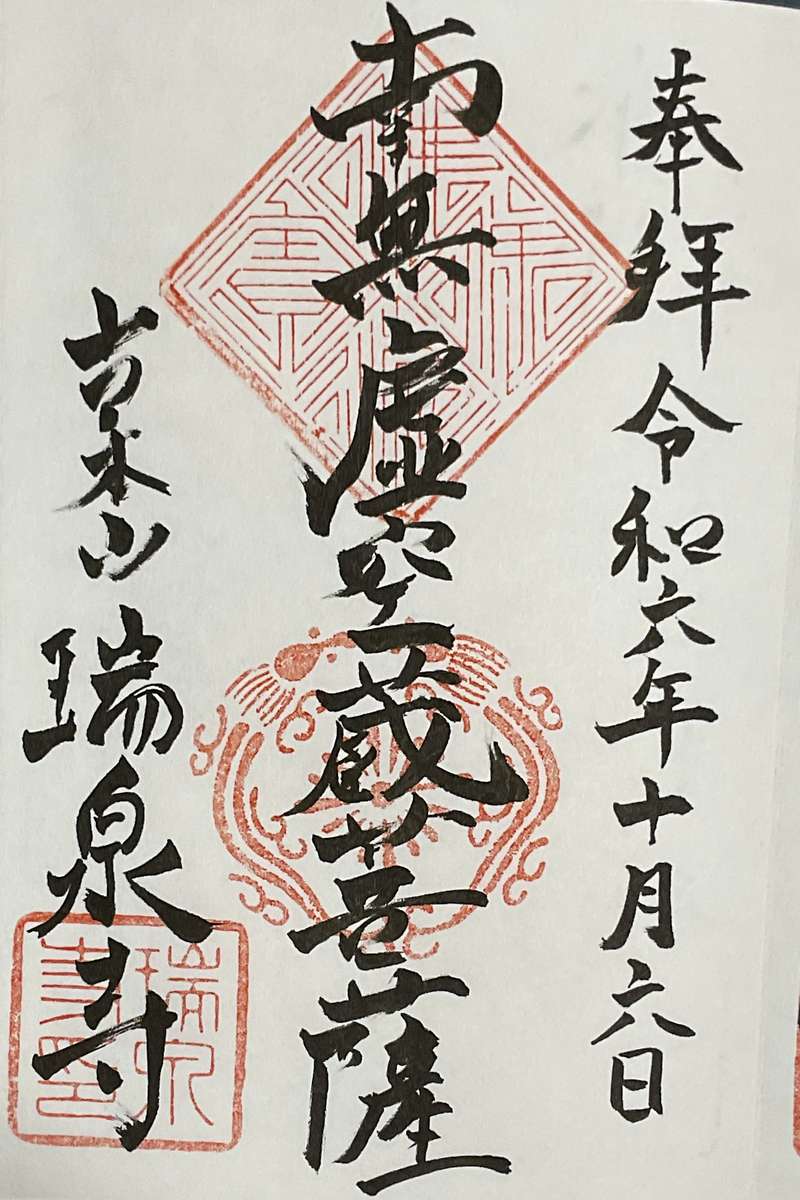 奉拝 令和六年十月六日
南無虚空蔵菩薩
吉木山 瑞泉寺
瑞泉寺印